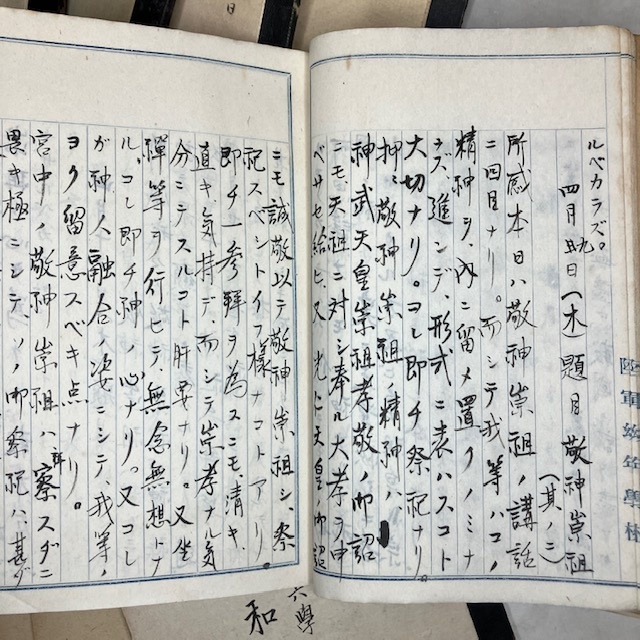 ルベカラズ。
四月九日(木)題目 敬神崇祖
(其ノ二)
所感 本日ハ敬神崇祖ノ講話
ニ四目ナリ。而シテ我等ハコノ
精神ヲ、内ニ留メ置クノミナ
ラズ、進ンデ、形式ニ表ハスコト
大切ナリ。コレ即チ祭祀ナリ
押々敬神崇祖ノ精神ハ
神武天皇崇祖孝敬ノ御詔
ニモ天祖ニ対シ奉ル大孝ヲ申
ベサセ給ヒ、又 光仁天皇御詔
ニモ誠敬以テ敬神崇祖シ、祭
祀スベシトイフ様ナコトアリ
即チ一参拝ヲ為スニモ、清キ
直キ、気持デ、而シテ崇孝ナル気
分ニテスルコト肝要ナリ。又坐
禅等ヲ行ヒテ、無念無想トナ
ル、コレ即チ神ノ心ナリ。又コレ
ガ神人融合ノ姿ニシテ、我等ノ
ヨク留意スベキ点ナリ。
宮中ノ敬神崇祖ハ察スダニ
畏キ極ミニシテソノ御祭祀ハ、甚ダ
陸軍幼年學校
六學
和